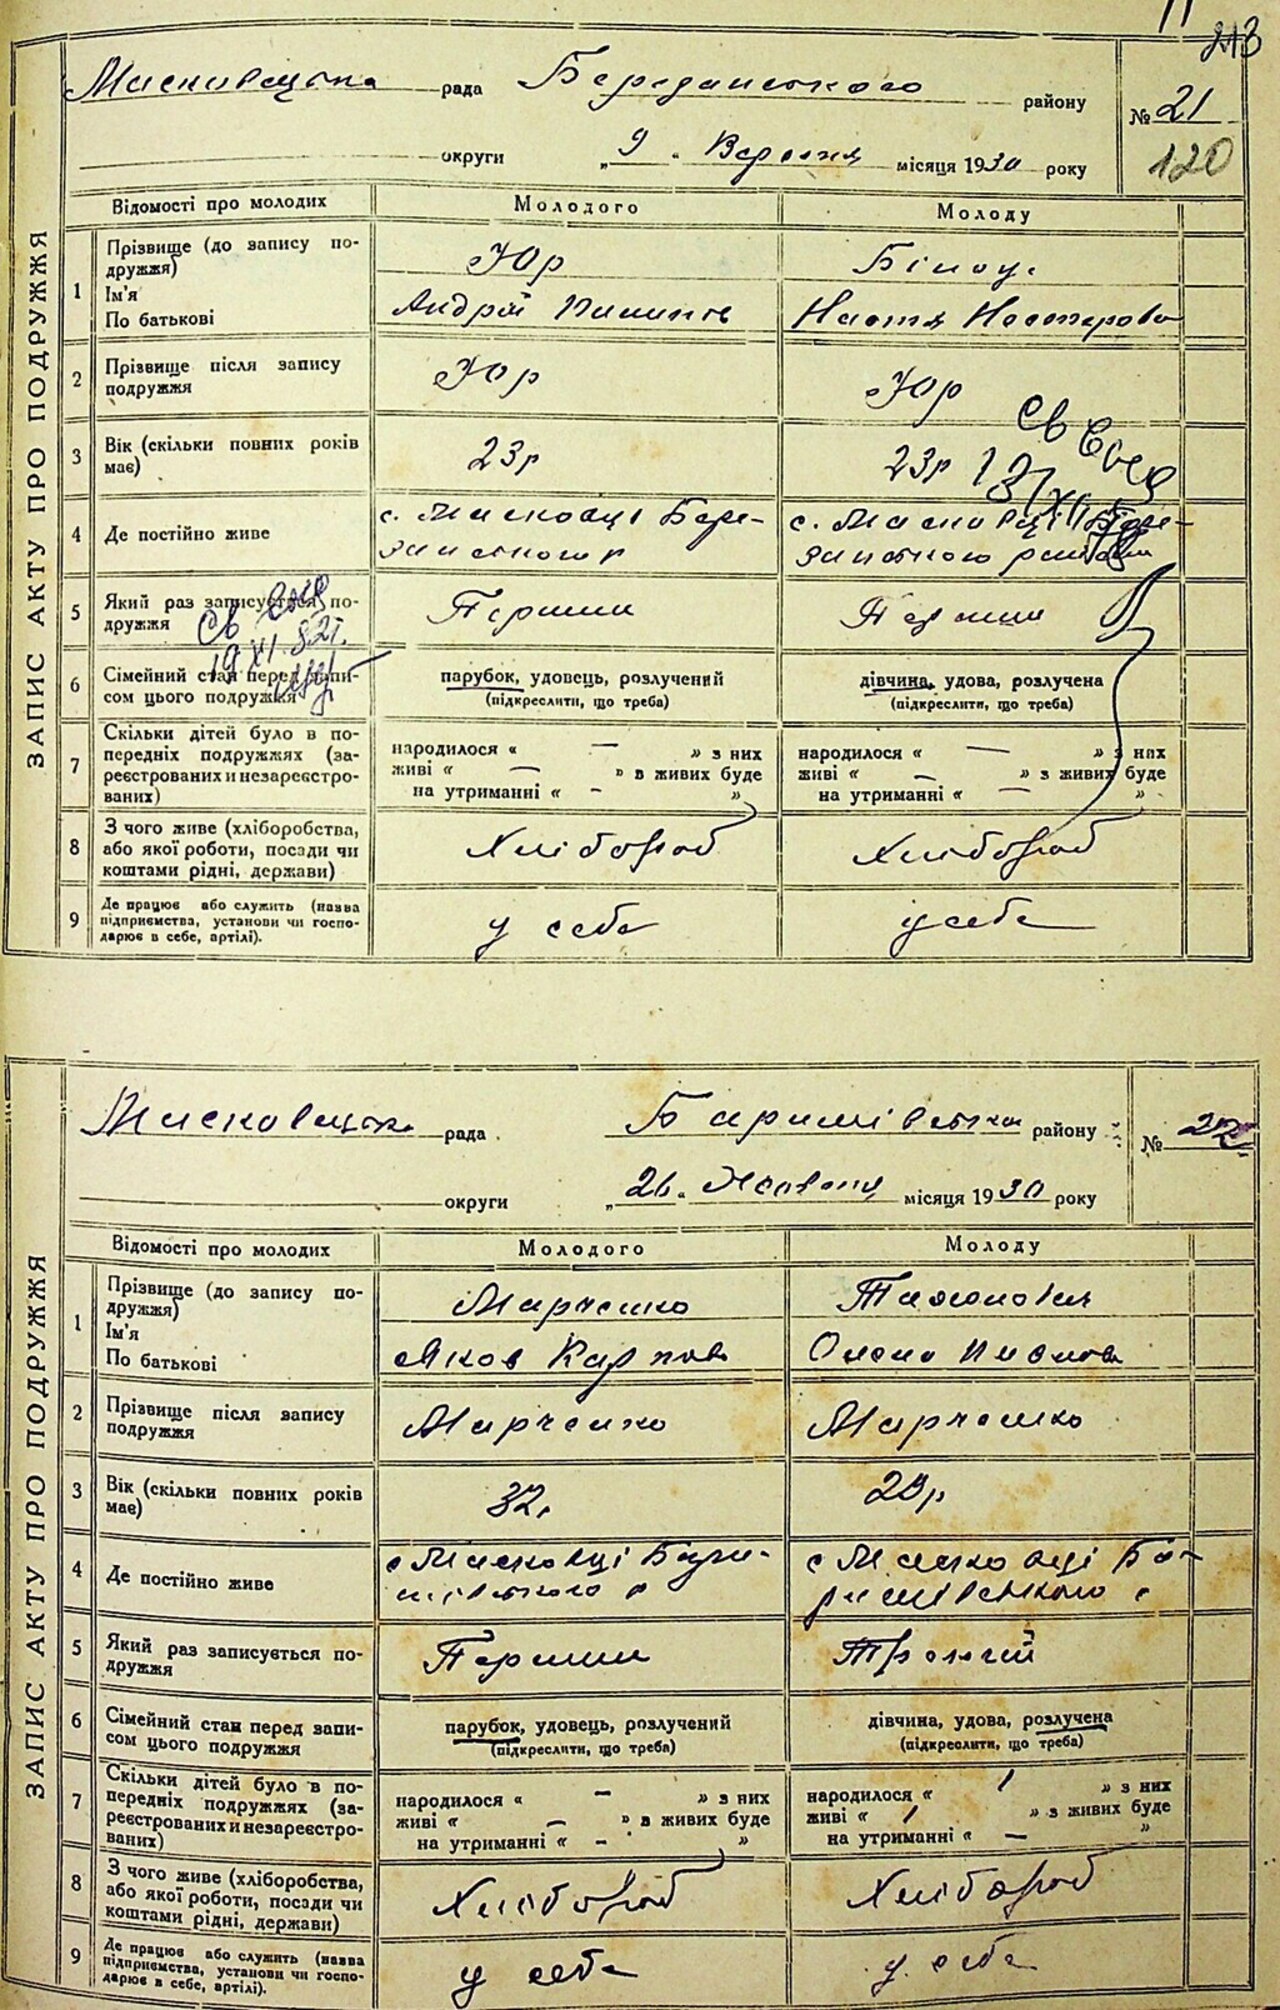 213
Масковецька рада Березанського району
№ 21
округи „ 9 „ Вересня місяця 1930 року
120
ЗАПИС АКТУ ПРО ПОДРУЖЖЯ
Відомості про молодих Молодого Молоду
1 Прізвище (до запису по-
дружжя) Юр
Ім'я
По батькові Андрій Настя Несторова
2 Прізвище після запису
подружжя Юр Юр
3 Вік (скільки повних років
має) 23р 23р
4 Де постійно живе с. Масковці Бере- с. Масковці Бере-
занського р занського
5 Який раз записується по-
дружжя Перший Перший
6 Сімейний стан перед запи-
сом цього подружжя парубок, удовець, розлучений дівчина, удова, розлучена
(підкреслити, що треба) (підкреслити, що треба)
7 Скільки дітей було в по-
передніх подружжях (за-
реєстрованих и незареєстро-
ваних) народилося « — » з них народилося « — » з них
живі « — » в живих буде живі « — » з живих буде
на утриманні « - » на утриманні « — »
8 З чого живе (хліборобства,
або якої роботи, посади чи
коштами рідні, держави) Хлібороб Хлібороб
9 Де працює або служить (назва
підприємства, установи чи госпо-
дарює в себе, артілі). у себе у себе
Масковецька рада Баришівська району
№ 22
округи „ 26 „ Жовтня місяця 1930 року
ЗАПИС АКТУ ПРО ПОДРУЖЖЯ
Відомості про молодих Молодого Молоду
1 Прізвище (до запису по-
дружжя) Марченко
Ім'я
По батькові Яков Карпов Олена
2 Прізвище після запису
подружжя Марченко Марченко
3 Вік (скільки повних років
має) 32р
4 Де постійно живе с Масковці Бари- с Масковці Ба-
шівського р ришівського
5 Який раз записується по-
дружжя Перший Третій
6 Сімейний стан перед запи-
сом цього подружжя парубок, удовець, розлучений дівчина, удова, розлучена
(підкреслити, що треба) (підкреслити, що треба)
7 Скільки дітей було в по-
передніх подружжях (за-
реєстрованих и незареєстро-
ваних) народилося « — » з них народилося « 1 » з них
живі « — » в живих буде живі « 1 » з живих буде
на утриманні « - » на утриманні « — »
8 З чого живе (хліборобства,
або якої роботи, посади чи
коштами рідні, держави) Хлібороб Хлібороб
9 Де працює або служить (назва
підприємства, установи чи госпо-
дарює в себе, артілі). у себе у себе